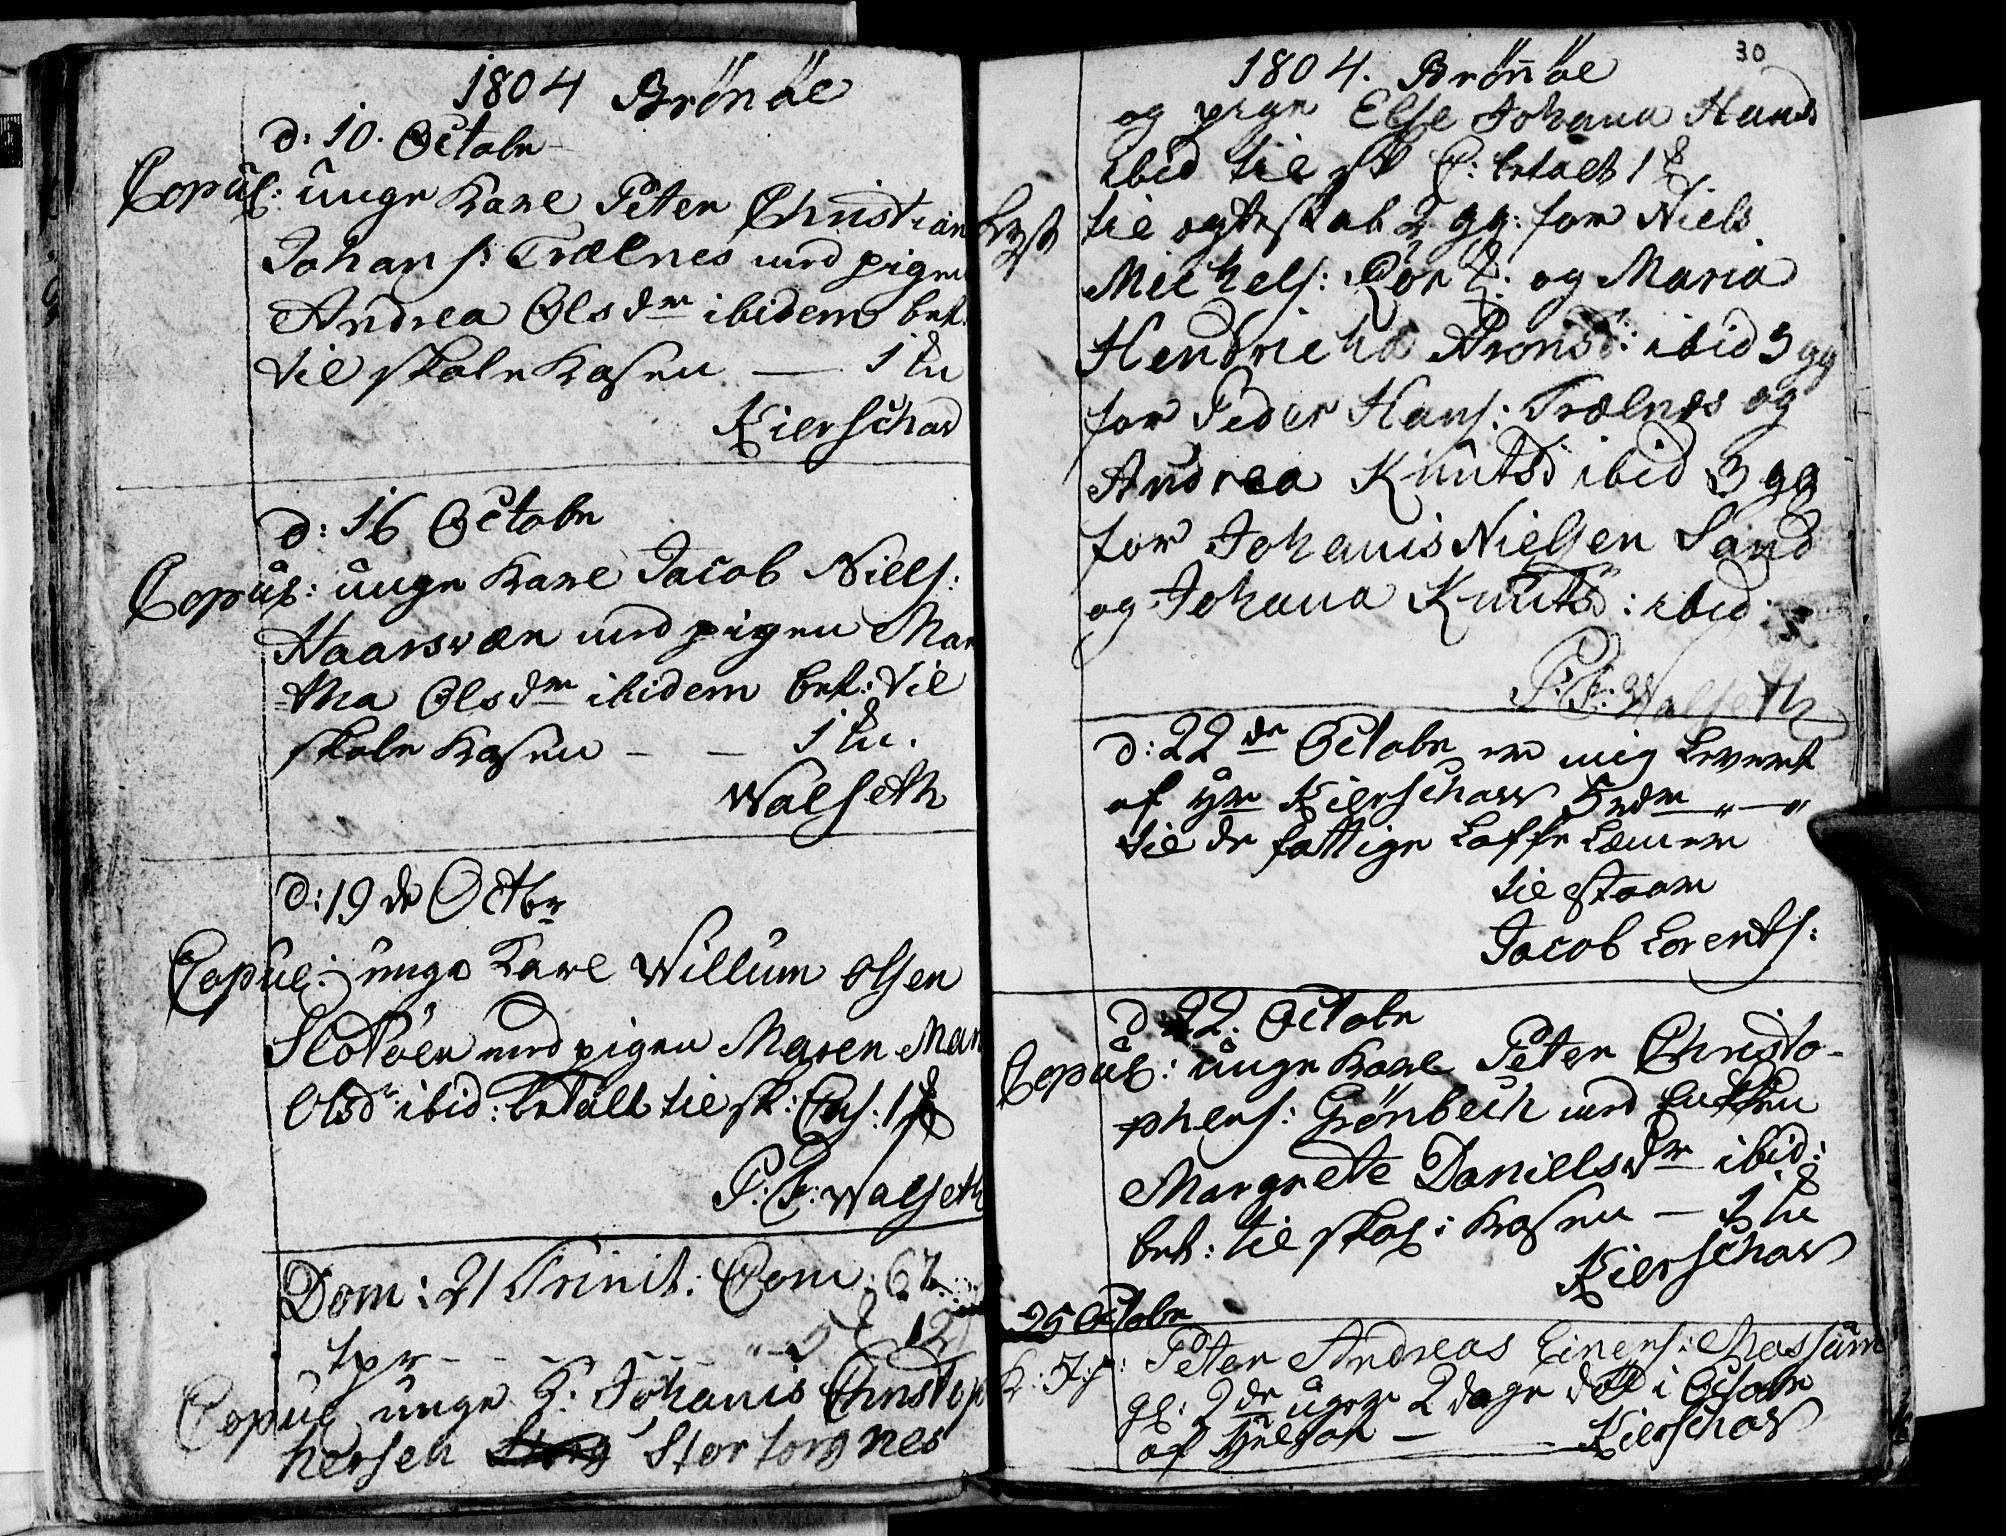 1804 Brönöe
d: 10. Octobr
Copul: unge Karl Peter Christian
Johans: Trælnes med pigen
Andrea Olsdr ibidem bet:
til skole Kasen — 1
Kierschow
d: 16 Octobr
Copul: unge Karl Jacob Niels:
Haarsvær med pigen Mar
tha Olsdr ibidem bet: til
skole Kasen — — 1
Walseth
d: 19 de Octbr
Copul: unge Karl Willum Olsen
med pigen Maren Mar
Olsd: ibid: betalt til sk: Cas: 1
P: F: Walseth
Dom: 21 Trinit: Com: 67
Copul unge K: Johanis Christop
hersen Stortorgnes
30
1804. Brönöe
og pige Else Johana Hansd
ibid til sk C: betalt 1
Lyst til ægteskab 2 gg: for Niels
Michels: og Maria
Hendricha Aronsd: ibid 3 gg
for Peder Hans: Trælnes og
Andrea Knutsd ibid 3 gg
for Johanis Nielsen Sand
og Johana Knutsd: ibid:
P: F: Walseth
d: 22 de Octobr er mig levert
af Hr Kierschow 5 rdr
til de fattige Laffe Lemmer
tilstaar
Jacob Lorents:
d 22. Octobr
Copul: unge Karl Peter Christo-
phers: Grönbech med Enken
Margrete Danielsdr ibid:
bet: til skol: Kasen — 1
Kierschow
25 Octobr
Peter Andreas Einers: Mossum
gl: 2 de uger 2 dage död i Octobr
af
Kierschow